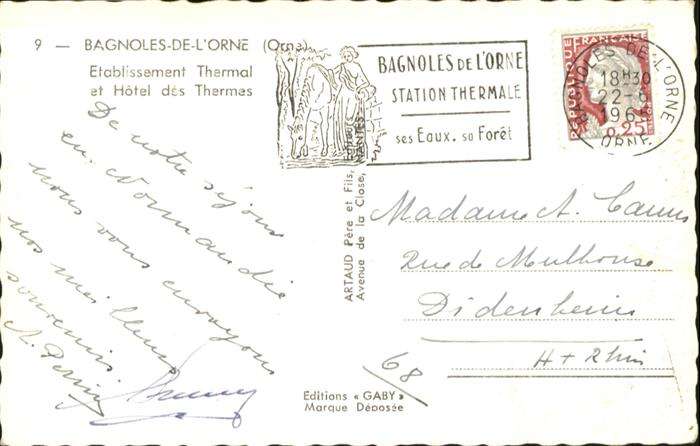 9 — BAGNOLES-DE-L'ORNE (Orne)
Etablissement Thermal
et Hôtel dés Thermes
BAGNOLES DE L'ORNE
STATION THERMALE
ses Eaux. sa Forêt
BAGNOLES DE L'ORNE
18H30
22-6
196
ORNE
REPUBLIQUE FRANÇAISE
0,25
De notre séjour
en Normandie
nous vous envoyons
nos meilleurs
souvenirs
ARTAUD Père et Fils, Editeurs
Avenue de la Close, NANTES
Madame A.
Rue de Mulhouse
Didenheim
Ht Rhin
68
Editions « GABY »
Marque Déposée